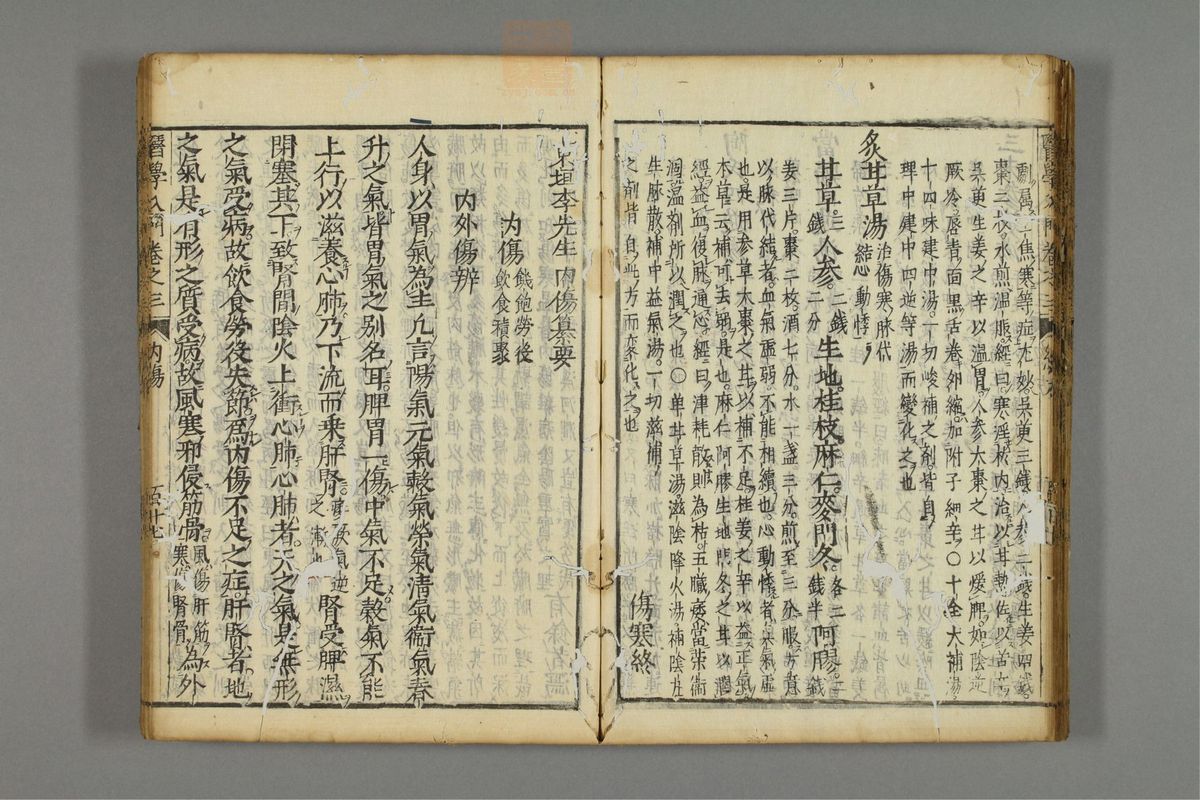 醫學入門 卷之三
焦寒等症尤妙。吳萸三錢人參二錢。生姜四錢
棗三枚。水煎溫服。經曰寒淫於内治以甘熱佐以苦辛。
吳萸生姜之辛以溫胃。人參大棗之甘以煖脾。如陰逆
厥冷。唇青面黑。舌卷外縮。加附子細辛。〇十全大補湯。
十四味建中湯。一切峻補之劑皆自
理中建中四逆等湯而變化之也
炙甘草湯 治傷寒脉代
結心動悸
甘草三錢人參二錢二分生地桂枝麻仁麥門冬。各二錢半阿膠二錢
姜三片。棗二枚。酒七分。水一盞三分。煎至三分服。方意
以脉代結者。血氣虛弱。不能相續也。心動悸者。眞氣虛
也。是用參草大棗之甘以補不足。桂姜之辛以益正氣。
本草云補可去弱是也。麻仁阿膠生地門冬之甘以潤
經益血復脉通心。經曰津耗散則為枯。五臟痿當榮衛
涸。溫劑所以潤之也。〇單甘草湯。滋陰降火湯。補陰丸
生脉散。補中益氣湯。一切滋補
之劑皆自此方而變化之也
傷寒終
東垣李先生内傷纂要
内傷 饑飽勞役
飲食積聚
内外傷辨
人身以胃氣為主凡言陽氣元氣穀氣榮氣淸氣衞氣春
升之氣皆胃氣之别名耳。脾胃一傷中氣不足穀氣不能
上行以滋養心肺。乃下流而乗肝腎。痿厥氣逆之漸也腎受脾濕
閉塞其下致腎間陰火上衝心肺心肺者天之氣是無形
之氣受病故飲食勞役失節為内傷不足之症。肝腎者地
之氣是有形之質受病故風寒邪侵筋骨風傷肝筋寒傷腎骨為外
醫學入門 卷之三 内傷